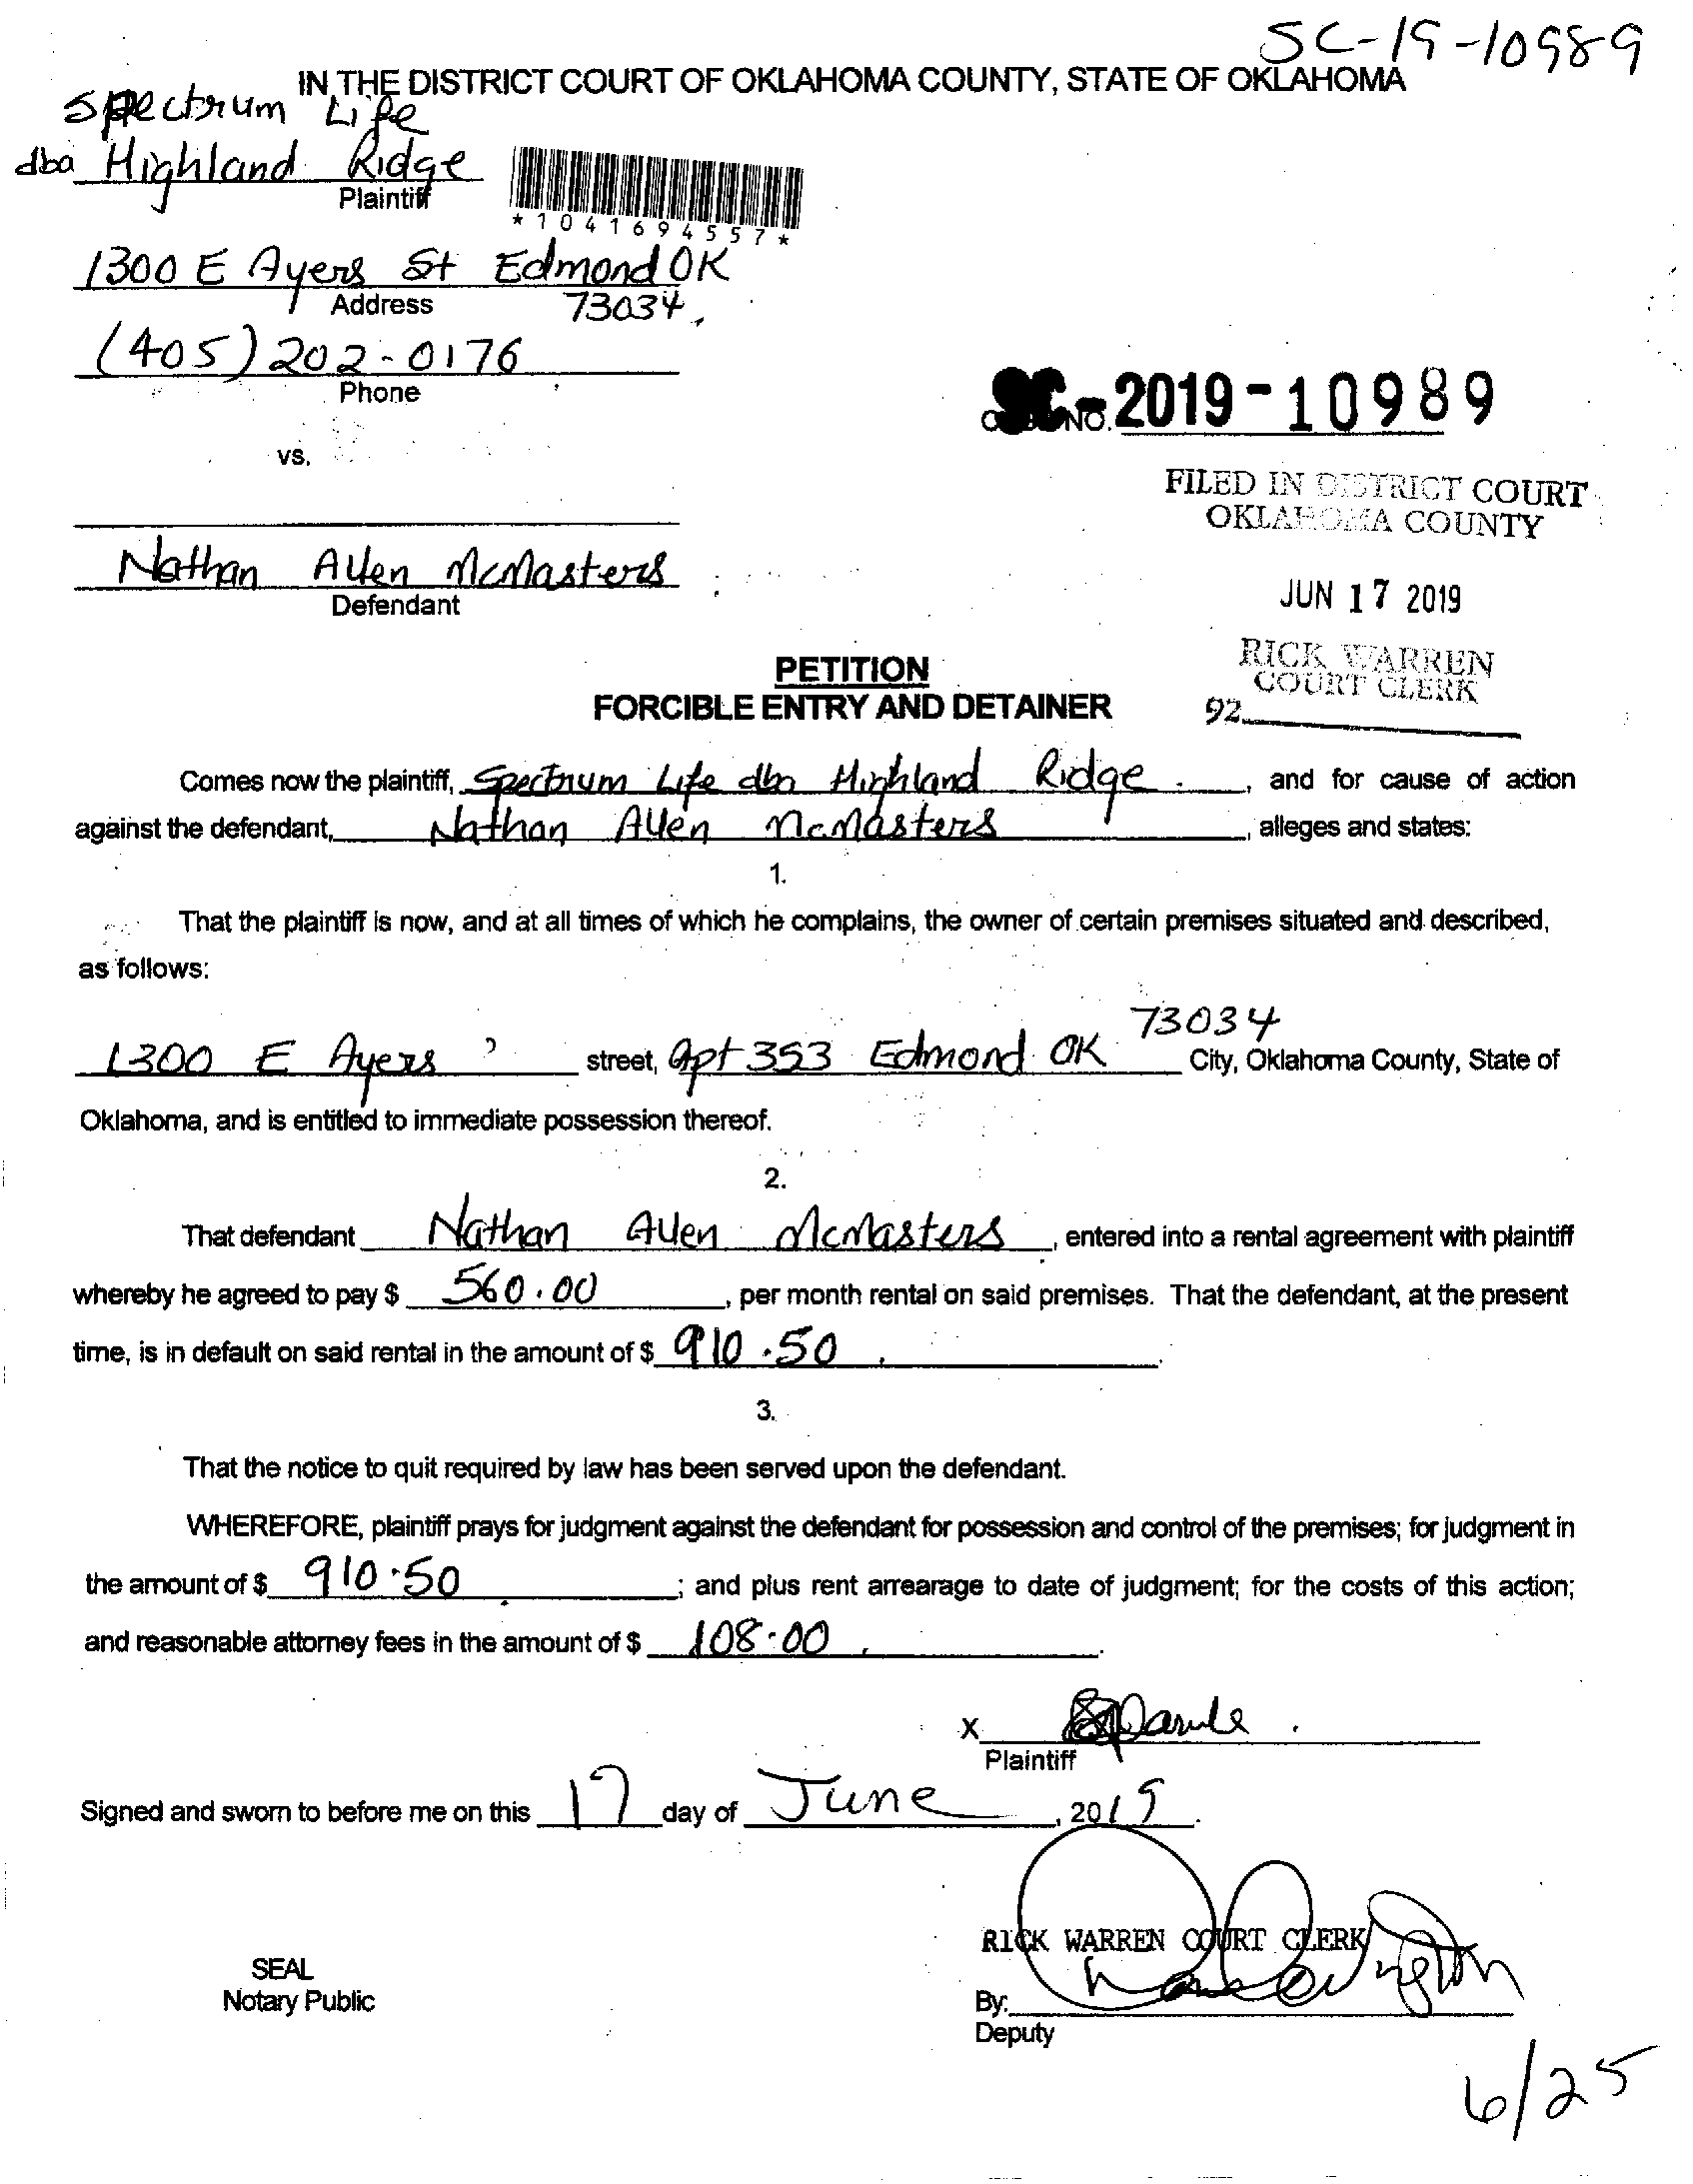 SC-19-10989
IN THE DISTRICT COURT OF OKLAHOMA COUNTY, STATE OF OKLAHOMA
Spectrum Life
dba Highland Ridge
Plaintiff
*1041694557*
1300 E Ayers St Edmond OK
Address 73034
(405) 202-0176
Phone
SC-2019-10989
NO.
vs.
FILED IN DISTRICT COURT
OKLAHOMA COUNTY
Nathan Allen McMasters
Defendant
JUN 17 2019
RICK WARREN
COURT CLERK
92
PETITION
FORCIBLE ENTRY AND DETAINER
Comes now the plaintiff, Spectrum Life dba Highland Ridge, and for cause of action
against the defendant, Nathan Allen McMasters, alleges and states:
1.
That the plaintiff is now, and at all times of which he complains, the owner of certain premises situated and described,
as follows:
73034
1300 E Ayers, street, Apt 353 Edmond OK City, Oklahoma County, State of
Oklahoma, and is entitled to immediate possession thereof.
2.
That defendant Nathan Allen McMasters, entered into a rental agreement with plaintiff
whereby he agreed to pay $ 560.00, per month rental on said premises. That the defendant, at the present
time, is in default on said rental in the amount of $ 910.50.
3.
That the notice to quit required by law has been served upon the defendant.
WHEREFORE, plaintiff prays for judgment against the defendant for possession and control of the premises; for judgment in
the amount of $ 910.50; and plus rent arrearage to date of judgment; for the costs of this action;
and reasonable attorney fees in the amount of $ 108.00.
X
Plaintiff
Signed and sworn to before me on this 17 day of June, 2019.
RICK WARREN COURT CLERK
SEAL
Notary Public
By:
Deputy
6/25